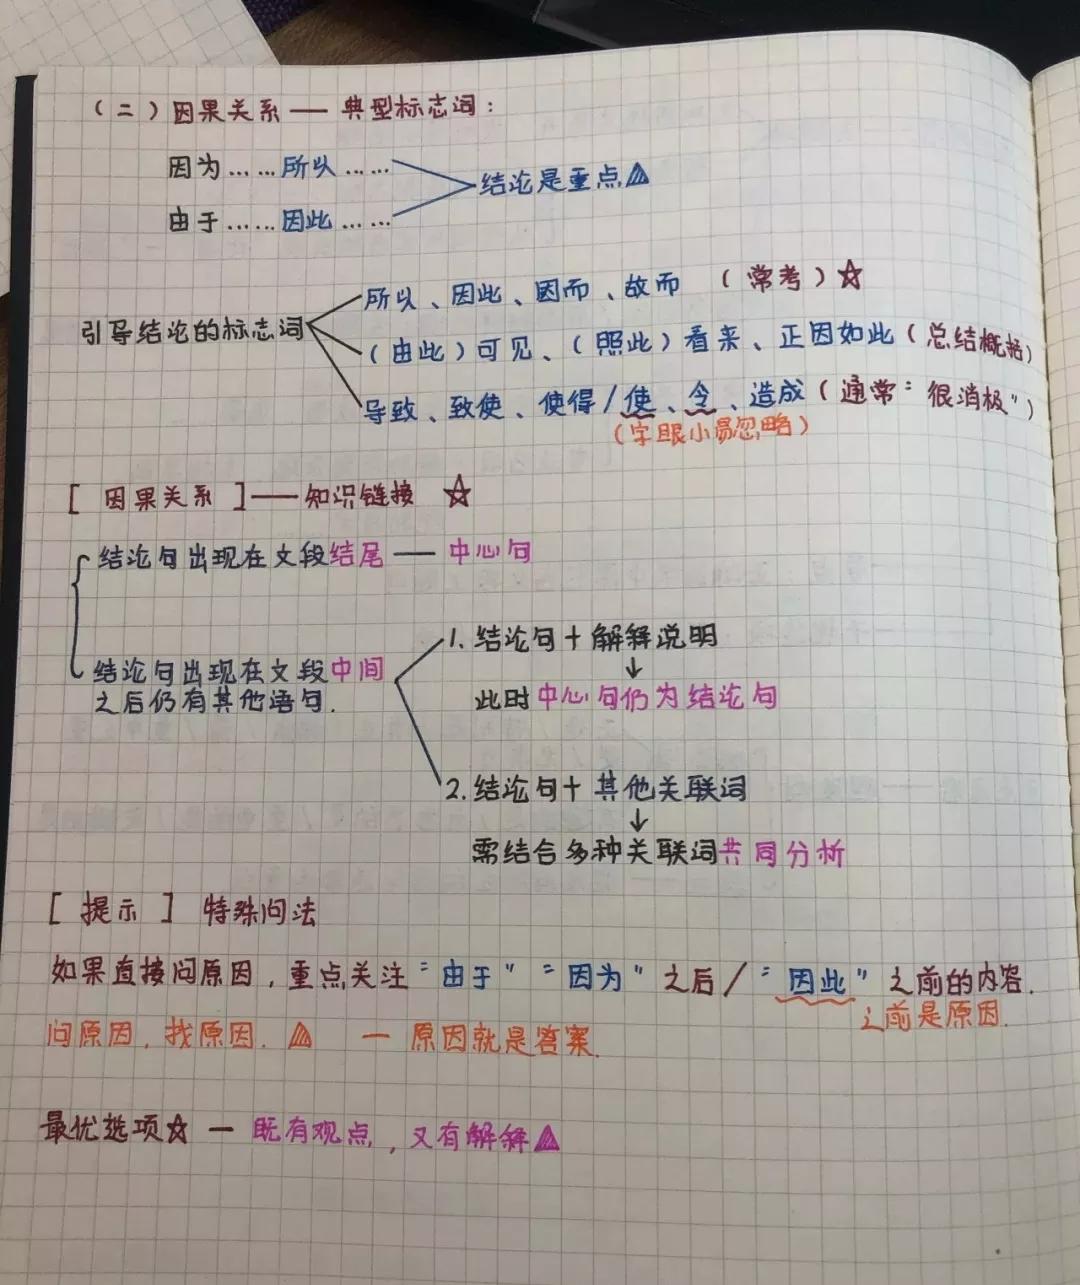 （二）因果关系 —— 典型标志词：
因为……所以……
结论是重点
由于……因此……
所以、因此、因而、故而 （常考）☆
引导结论的标志词
（由此）可见、（照此）看来、正因如此（总结概括）
导致、致使、使得/使、令、造成（通常“很消极”）
（字眼小易忽略）
[ 因果关系 ]——知识链接 ☆
结论句出现在文段结尾 —— 中心句
1. 结论句＋解释说明
↓
结论句出现在文段中间
之后仍有其他语句.
此时中心句仍为结论句
2. 结论句＋其他关联词
↓
需结合多种关联词共同分析
[ 提示 ] 特殊问法
如果直接问原因，重点关注“由于”“因为”之后/“因此”之前的内容.
之前是原因.
问原因，找原因. — 原因就是答案.
最优选项☆ — 既有观点，又有解释